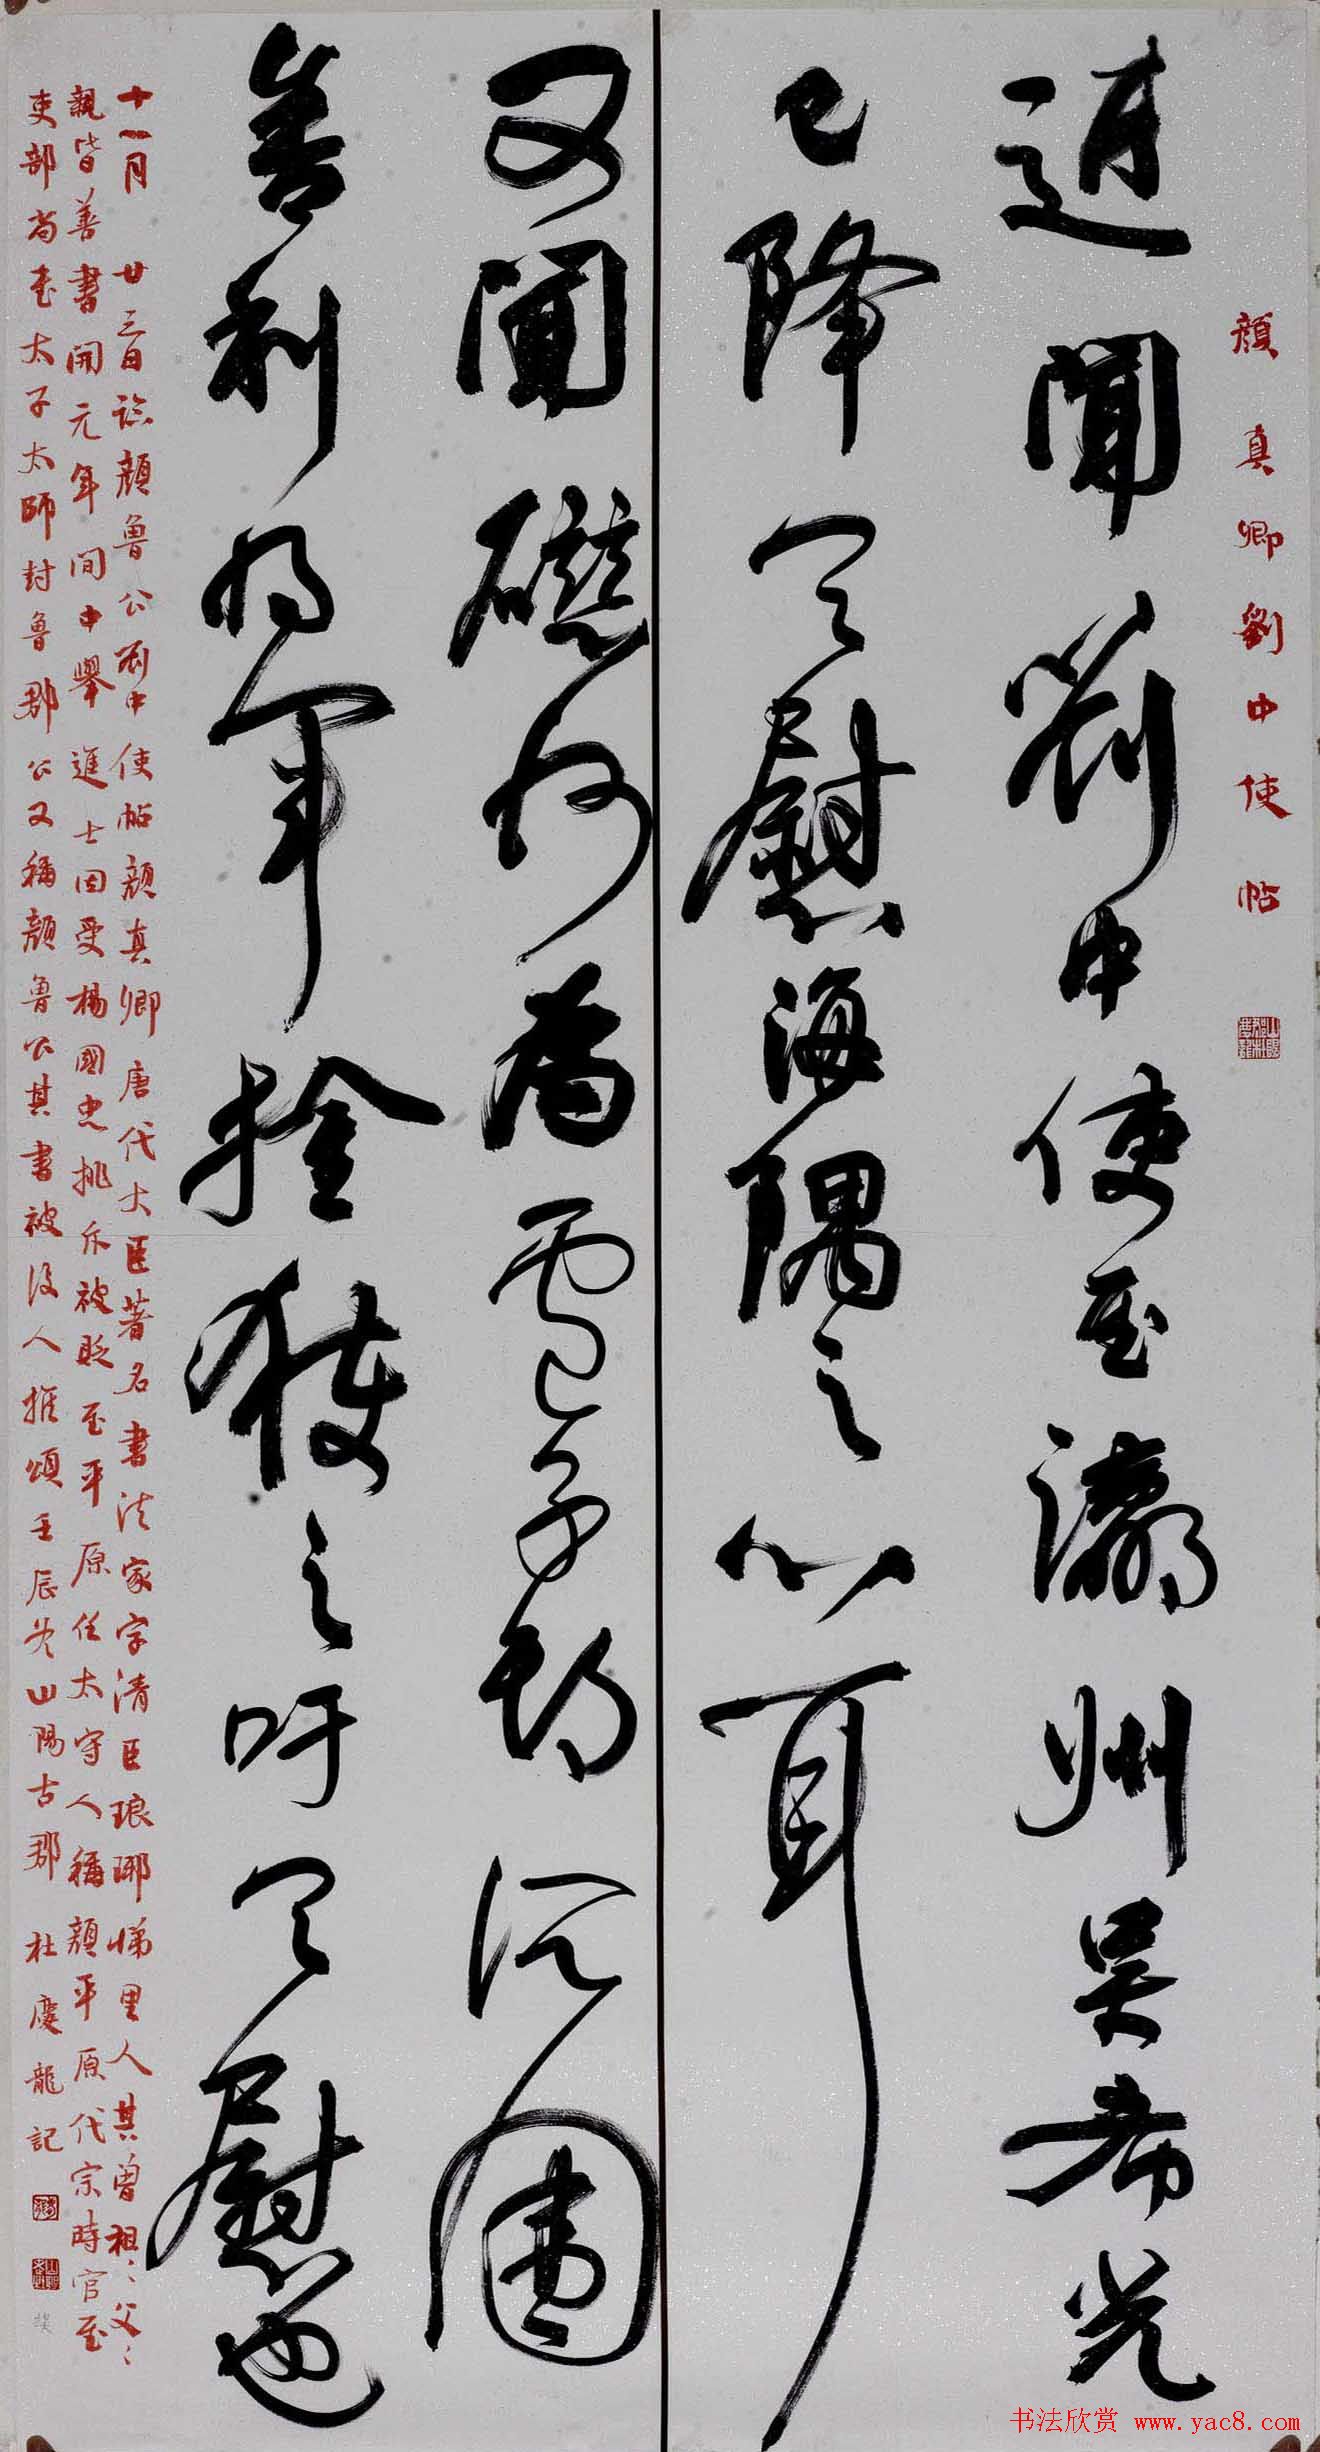 顔真卿劉中使帖
近聞劉中使至瀛州吴希光
已降足慰海隅之心耳
又聞磁州為盧子期所圍
舍利將軍擒獲之吁足慰也
十一月廿三日臨顔魯公劉中使帖顔真卿唐代大臣著名書法家字清臣琅琊臨沂人其曾祖、祖父、父
親皆善書開元年間中舉進士因受楊國忠排斥被貶至平原任太守人稱顔平原代宗時官至
吏部尚書太子太師封魯郡公又稱顔魯公其書被後人推頌壬辰冬山陽古郡杜慶龍記
书法欣赏 www.yac8.com